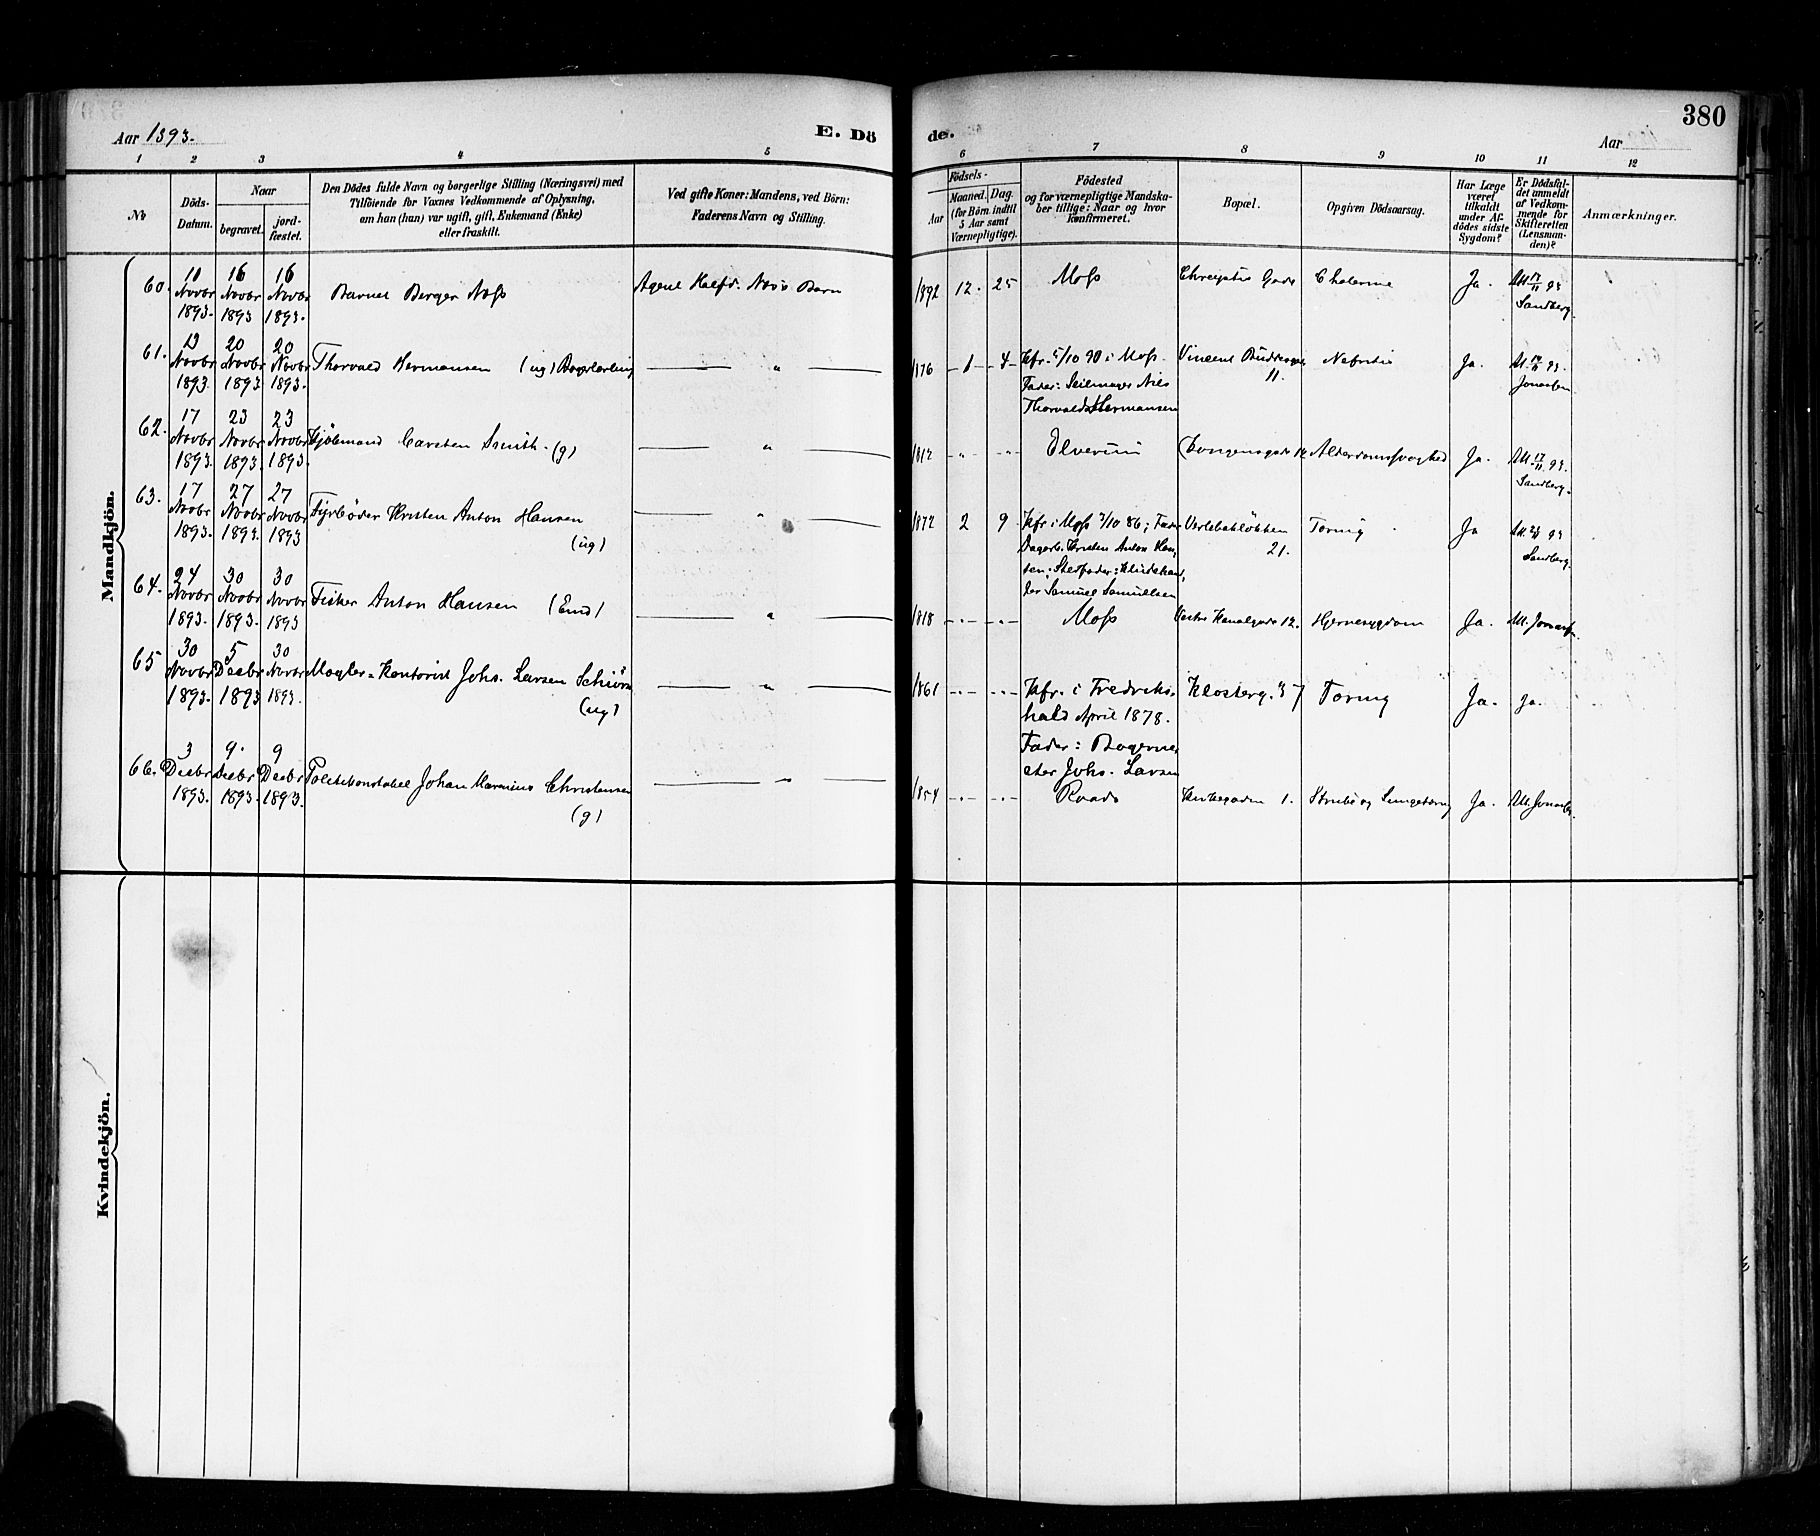 380
Aar 1893.
E. Dö
de.
Aar
1 2 3 4 5
6 7 8 9 10 11 12
No
Döds-
Datum.
Naar
begravet.
jord-
fæstet.
Den Dödes fulde Navn og borgerlige Stilling (Næringsvei) med
Tilföiende for Voxnes Vedkommende af Oplysning,
om han (hun) var ugift, gift, Enkemand (Enke)
eller fraskilt.
Ved gifte Koner: Mandens, ved Börn:
Faderens Navn og Stilling.
Födsels-
Aar
Maaned.
Dag.
(for Börn indtil
5 Aar samt
Værnepligtige).
Födested
og for værnepligtige Mandska-
ber tillige: Naar og hvor
Konfirmeret.
Bopæl.
Opgiven Dödsaarsag.
Har Læge
været
tilkaldt
under Af-
dödes sidste
Sygdom?
Er Dödsfal-
det anmeldt
af Vedkom-
mende for
Skifteretten
(Lensman-
den)?
Anmærkninger.
Mandkjön.
60. Novbr 1893. 16 Novbr 1893 16 Novbr 1893. Barnet Berger Næss Agent Næss Barn 1892 12. 25 Moss Gade Cholerine Ja. 93 Sandberg.
61. Novbr 1893. 20 Novbr 1893 20 Novbr 1893. Thorvald Hermansen (ug) — " — 1876 1 4 Kfr. 5/10 90 i Moss.
Fader: Seilmager Nils
Thorvald Hermansen
11. Nefritis Ja. 93. Jonassen
62. 17 Novbr 1893. 23 Novbr 1893. 23 Novbr 1893. Kjöbmand Carsten Smith. (g) — " — 1812 " " Elverum Kongensgade Ja. 93. Sandberg.
63. 17 Novbr 1893. 27 Novbr 1893. 27 Novbr 1893 Fyrböder Kristen Anton Hansen
(ug) — " — 1872 2 9 Kfr. i Moss 86; Fader
Dagarb. Kristen Anton Han-
sen; Stedfader:
Samuel Samuelsen
21. Tæring Ja 93 Sandberg.
64. 24 Novbr 1893. 30 Novbr 1893. 30 Novbr 1893 Fisker Anton Hansen (Emd) — " — 1818 Moss Kanalgade 12. Hjernesygdom Ja. Jonassen
65 30 Novbr 1893. 5 Decbr 1893 30 Novbr 1893. Mægler-Kontorist Johs. Larsen
(ug) — " — 1861 Kfr. i Fredriks-
hald April 1878.
Fader: Bagerme-
ster Johs. Larsen
Klosterg. 37 Tæring Ja. Ja.
66. 3 Decbr 1893. 9. Decbr 1893. 9 Decbr 1893. Politikonstabel Johan Marinius Christensen
(g) — " — 1854 Raade Kirkegaden 1. Strube og Ja. Jonassen
Kvindekjön.